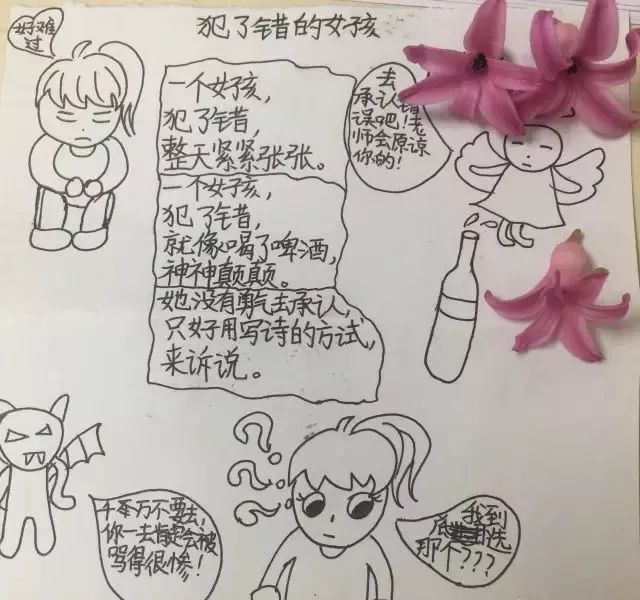 犯了错的女孩
好难
过
一个女孩,
犯了错,
整天紧紧张张。
一个女孩,
犯了错,
就像喝了啤酒,
神神颠颠。
她没有勇气去承认,
只好用写诗的方试,
来诉说。
去
承认错
误吧!老
师会原谅
你的!
千万不要去,
你一去肯定会被
骂得很惨!
我到
底选
那个???